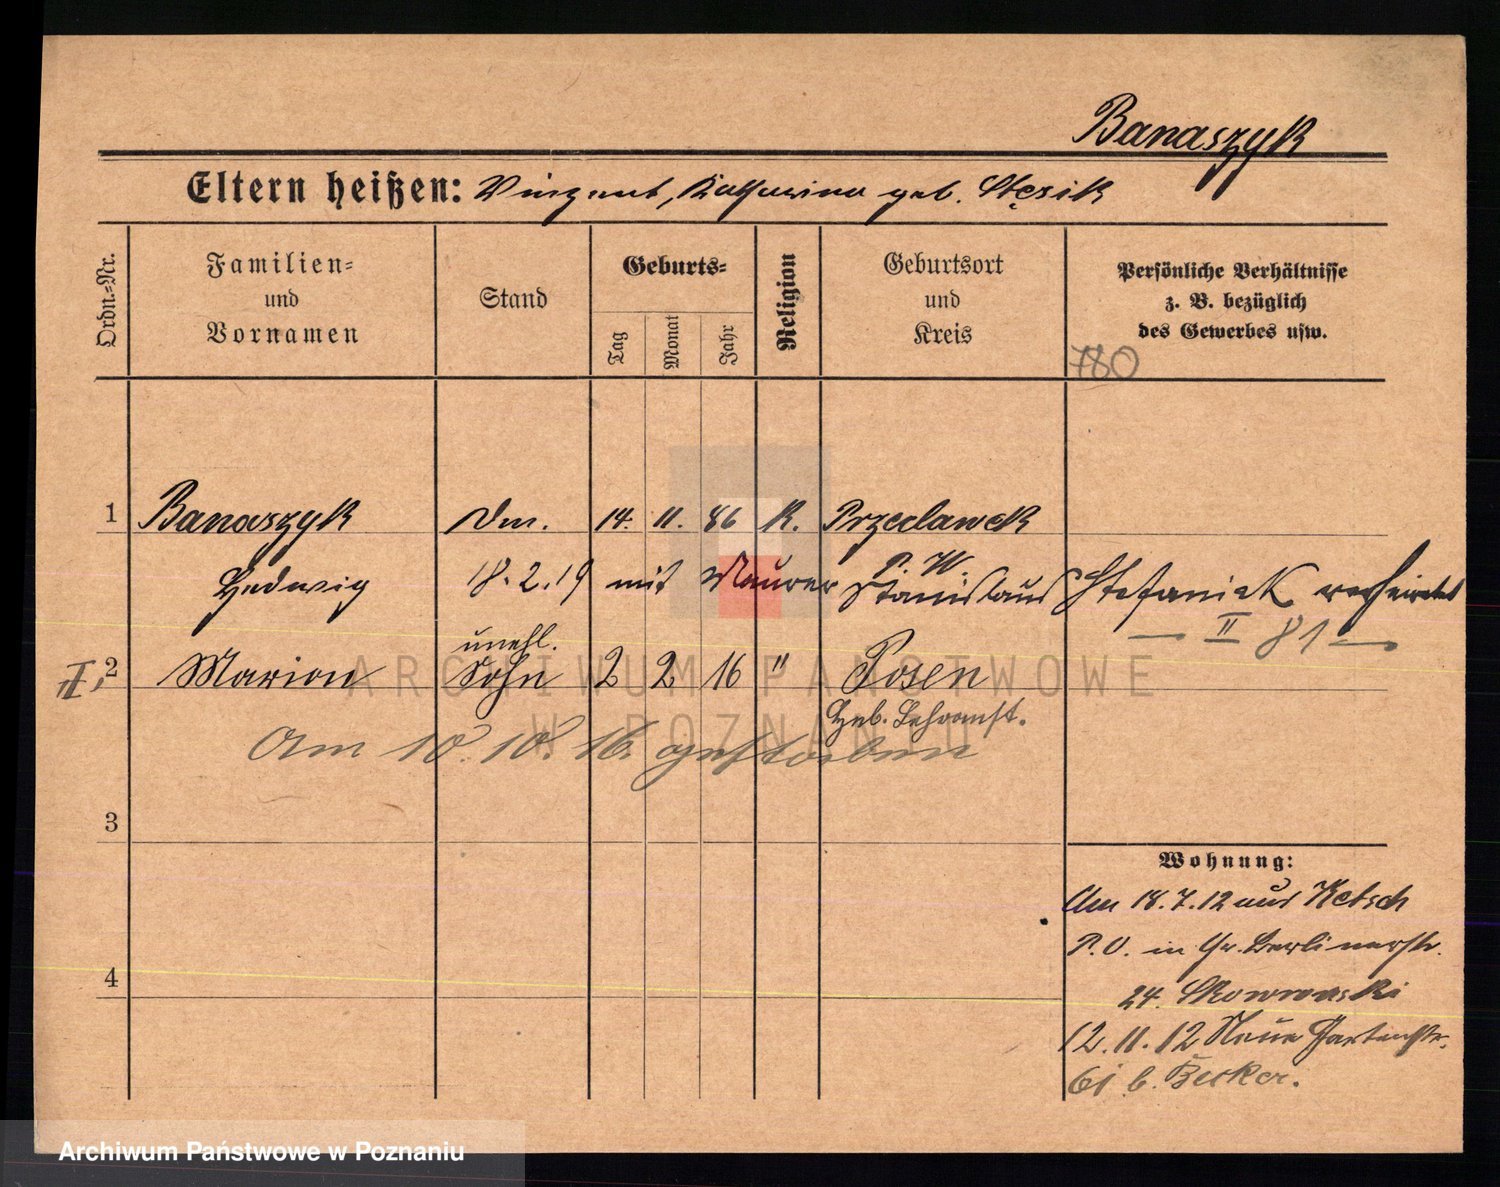 Banaszyk
Eltern heißen: Vinzent, Katharina geb. Stęsik
Ordn.-Nr.
Familien-
und
Vornamen
Stand
Geburts-
Tag
Monat
Jahr
Religion
Geburtsort
und
Kreis
Persönliche Verhältnisse
z. B. bezüglich
des Gewerbes usw.
780
1 Banaszyk Dm. 14. 11. 86 K. Przeclawek
P. W.
Hedwig 18.2.19 mit Maurer Stanislaus Stefaniak verheiratet
— II 81 —
unehl.
II, 2 Marian Sohn 2 2 16 " Posen
Heb. Lehranst.
Am 10. 10. 16. gestorben
3
4
Wohnung:
Am 18.7.12 aus Ketsch
P.O. in Gr. Berlinerstr.
24. Skowronski
12.11.12 Neue Gartenstr.
61 b. Becker.
ARCHIWUM PAŃSTWOWE
W POZNANIU
Archiwum Państwowe w Poznaniu